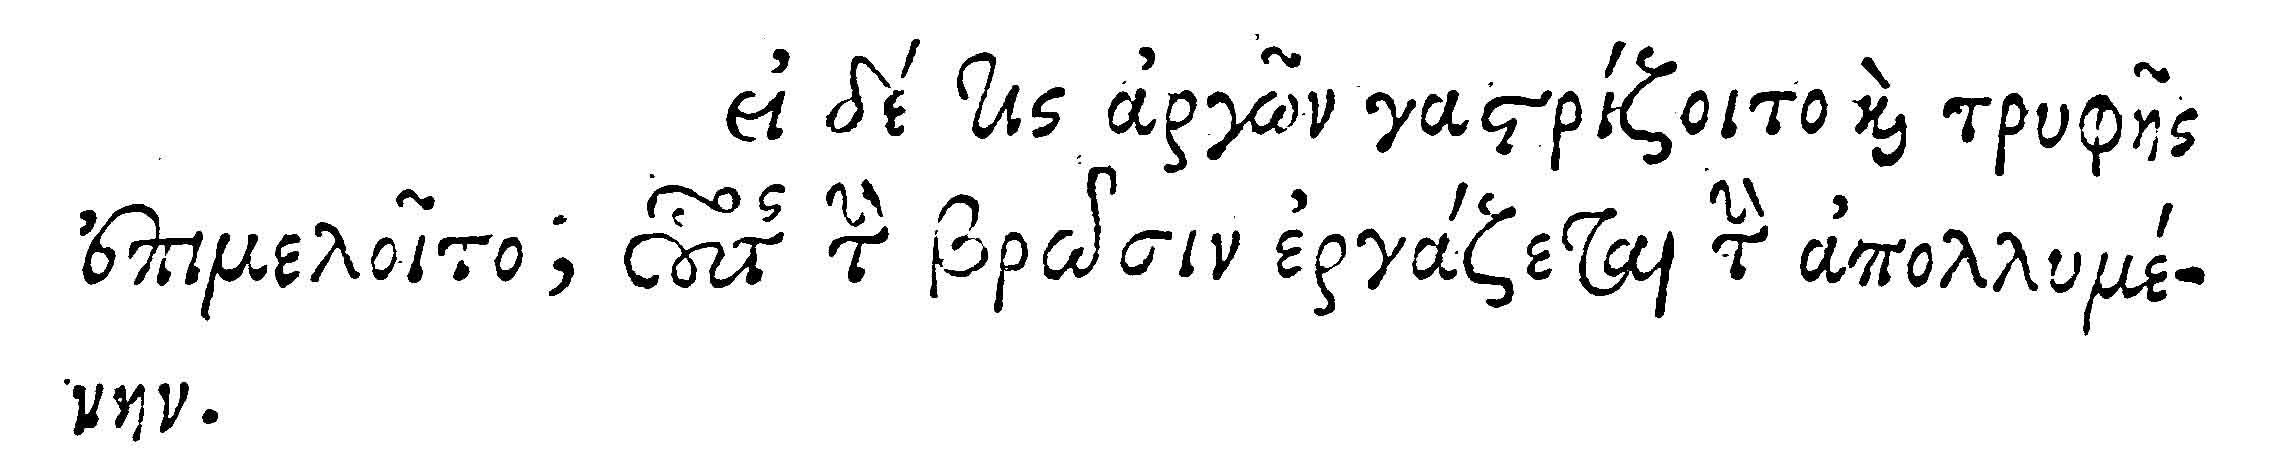 εἰ δέ τις ἀργῶν γαστρίζοιτο καὶ τρυφῆς
ἐπιμελοῖτο; οὗτος τὴν βρῶσιν ἐργάζεται τὴν ἀπολλυμέ-
νην.